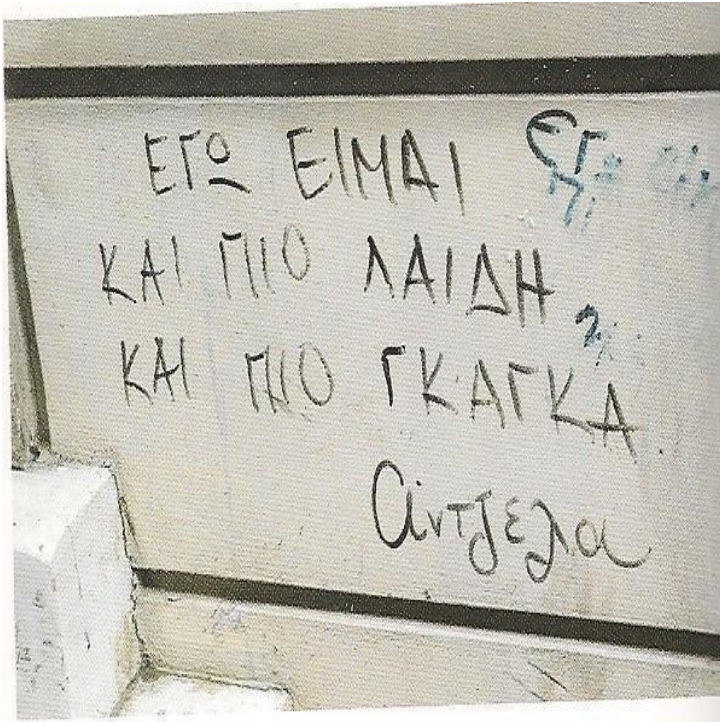 ΕΓΩ ΕΙΜΑΙ
ΚΑΙ ΠΙΟ ΛΑΙΔΗ
ΚΑΙ ΠΙΟ ΓΚΑΓΚΑ
αντζελα